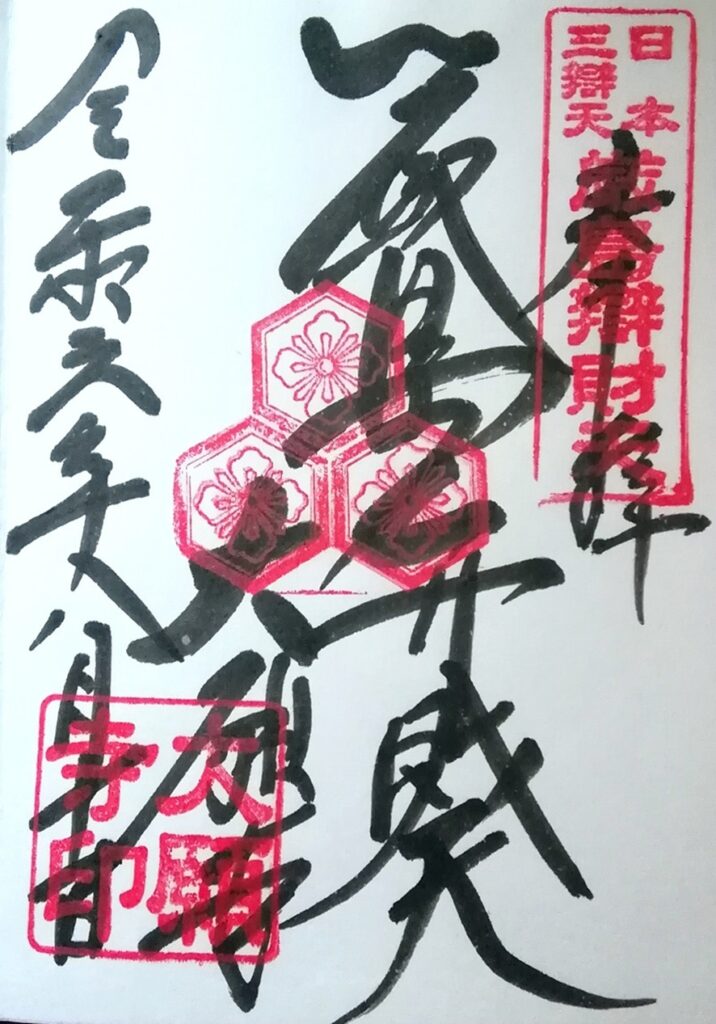 奉拝
日本
三辯天
嚴島辯財天
厳島弁財天
大願寺
令和六年八月
大願
寺印